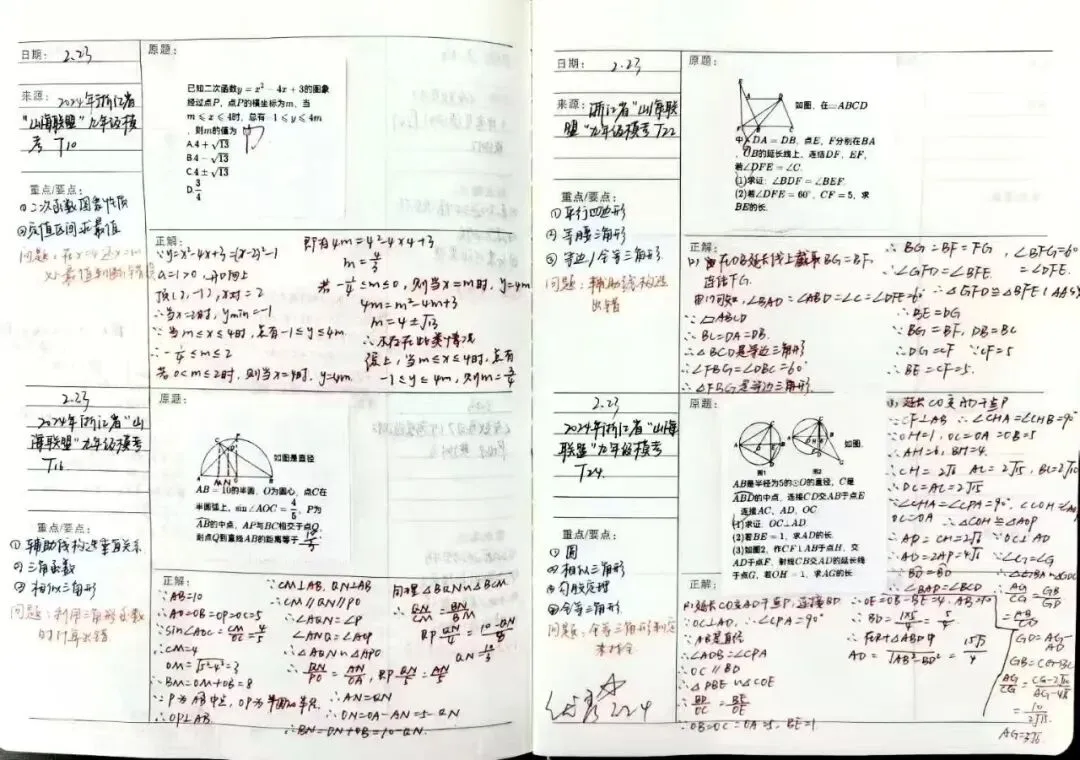 日期: 2.23
来源: 2024年浙江省
"山海联盟"九年级模
考 T10
重点/要点:
①二次函数图象性质
②定值区间求最值
原题:
已知二次函数y = x² − 4x + 3的图象
经过点P，点P的横坐标为m，当
m ≤ x ≤ 4时，总有−1 ≤ y ≤ 4m
，则m的值为
A.4 + √13
B.4 − √13
C.4 ± √13
D.3/4
正解:
∵y=x²-4x+3=(x-2)²-1
a=1>0，开口向上
顶(2,-1)，对称=2
∴当x=2时，ymin=-1
∵当m≤x≤4时，总有-1≤y≤4m
∴-1/4≤m≤2
若0<m≤2时，则当x=4时，y=4m
即有4m=4²-4×4+3
m=3/4
若-1/4≤m≤0，则当x=m时，y=4m
4m=m²-4m+3
m=4±√13
∴不存在此类情况
综上，当m≤x≤4时，总有
-1≤y≤4m，则m=3/4
2.23
2024年浙江省"山
海联盟"九年级模考
T16
重点/要点:
①辅助线构造垂直关系
②三角函数
③相似三角形
问题: 利用三角形函数
时计算出错
原题:
如图是直径
AB = 10的半圆，O为圆心，点C在
半圆弧上，sin∠AOC = 4/5，P为
AB的中点，AP与BC相交于点Q，
则点Q到直线AB的距离等于 10/3
正解:
∵AB=10
∴AO=OB=OP=OC=5
∵sin∠AOC=CM/OC=4/5
∴CM=4
OM=√5²-4²=3
∴BM=OM+OB=8
∵P为AB中点，OP为半圆的半径
∴OP⊥AB
∵CM⊥AB，QN⊥AB
∴CM∥QN∥PO
∴∠AQN=∠P
∠ANQ=∠AOP
∴△AQN∽△APO
∴QN/PO=AN/OA，即QN/5=AN/5
∴AN=QN
∴ON=OA-AN=5-QN
∴BN=ON+OB=10-QN
同理△BQN∽△BCM
∴QN/CM=BN/BM
即QN/4=10-QN/8
QN=10/3
日期: 2.23
来源: 浙江省"山海联
盟"九年级模考T22
重点/要点:
①平行四边形
②等腰三角形
③等边/全等三角形
问题: 辅助线构造
出错
原题:
如图，在▱ABCD
中，DA = DB，点E，F分别在BA
，CB的延长线上，连结DF，EF，
若∠DFE = ∠C.
(1)求证: ∠BDF = ∠BEF.
(2)若∠DFE = 60°，CF = 5，求
BE的长.
正解:
连结FG.
由(1)可知，∠BAD=∠ABD=∠C=∠DFE=60°
∵▱ABCD
∴BC=DA=DB.
∴△BCD是等边三角形
∴∠FBG=∠DBC=60°
∴△FBG是等边三角形.
∴BG=BF=FG，∠BFG=60°
=∠DFE.
∴∠GFD=∠BFE
∴△GFD≌△BFE(AAS)
∴BE=DG
∵BG=BF，DB=BC
∴DG=CF ∵CF=5
∴BE=CF=5.
2.23
2024年浙江省"山海
联盟"九年级模考
T24.
重点/要点:
①圆
②相似三角形
③勾股定理
④全等三角形
问题: 全等三角形判定
原题:
如图，
图1 图2
AB是半径为5的⊙O的直径，C是
ABD的中点，连接CD交AB于点E
，连接AC，AD，OC
(1)求证: OC⊥AD.
(2)若BE = 1，求AD的长.
(3)如图2，作CF⊥AB于点H，交
AD于点F，射线CB交AD的延长线
于点G，若OH = 1，求AG的长.
正解:
(1)延长CO交AD于点P，连接BD.
∵OC⊥AD，∴∠CPA=90°
∵AB是直径
∴∠ADB=∠CPA
∴OC∥BD
∴△DBE∽△COE
∴BD/OC=BE/OE
∵OB=OC=OA=5，BE=1
∴OE=OB-BE=4，AB=10
∴BD=1×5/4=5/4
∴在Rt△ABD中
AD=√AB²-BD²=15√7/4
(3)延长CO交AD于点P
∵CF⊥AB ∴∠CHA=∠CHB=90°
∵OH=1，OC=OA=OB=5
∴AH=6，BH=4.
∴CH=2√6 AC=2√15，BC=2√10
∴DC=AC=2√15
∵∠CHA=∠CPA=90°
OC=OA ∴△COH≌△AOP
∴AP=CH=2√6 ∵OC⊥AD
∴AD=2AP=4√6
∵BD=BD
∴∠BAD=∠BCD
AG/CG=GB/GD
=AB/CD
GD=AG-
AD
GB=CG-BC
AG/CG=CG-2√10/AG-4√6
=10/2√15
AG=3√6